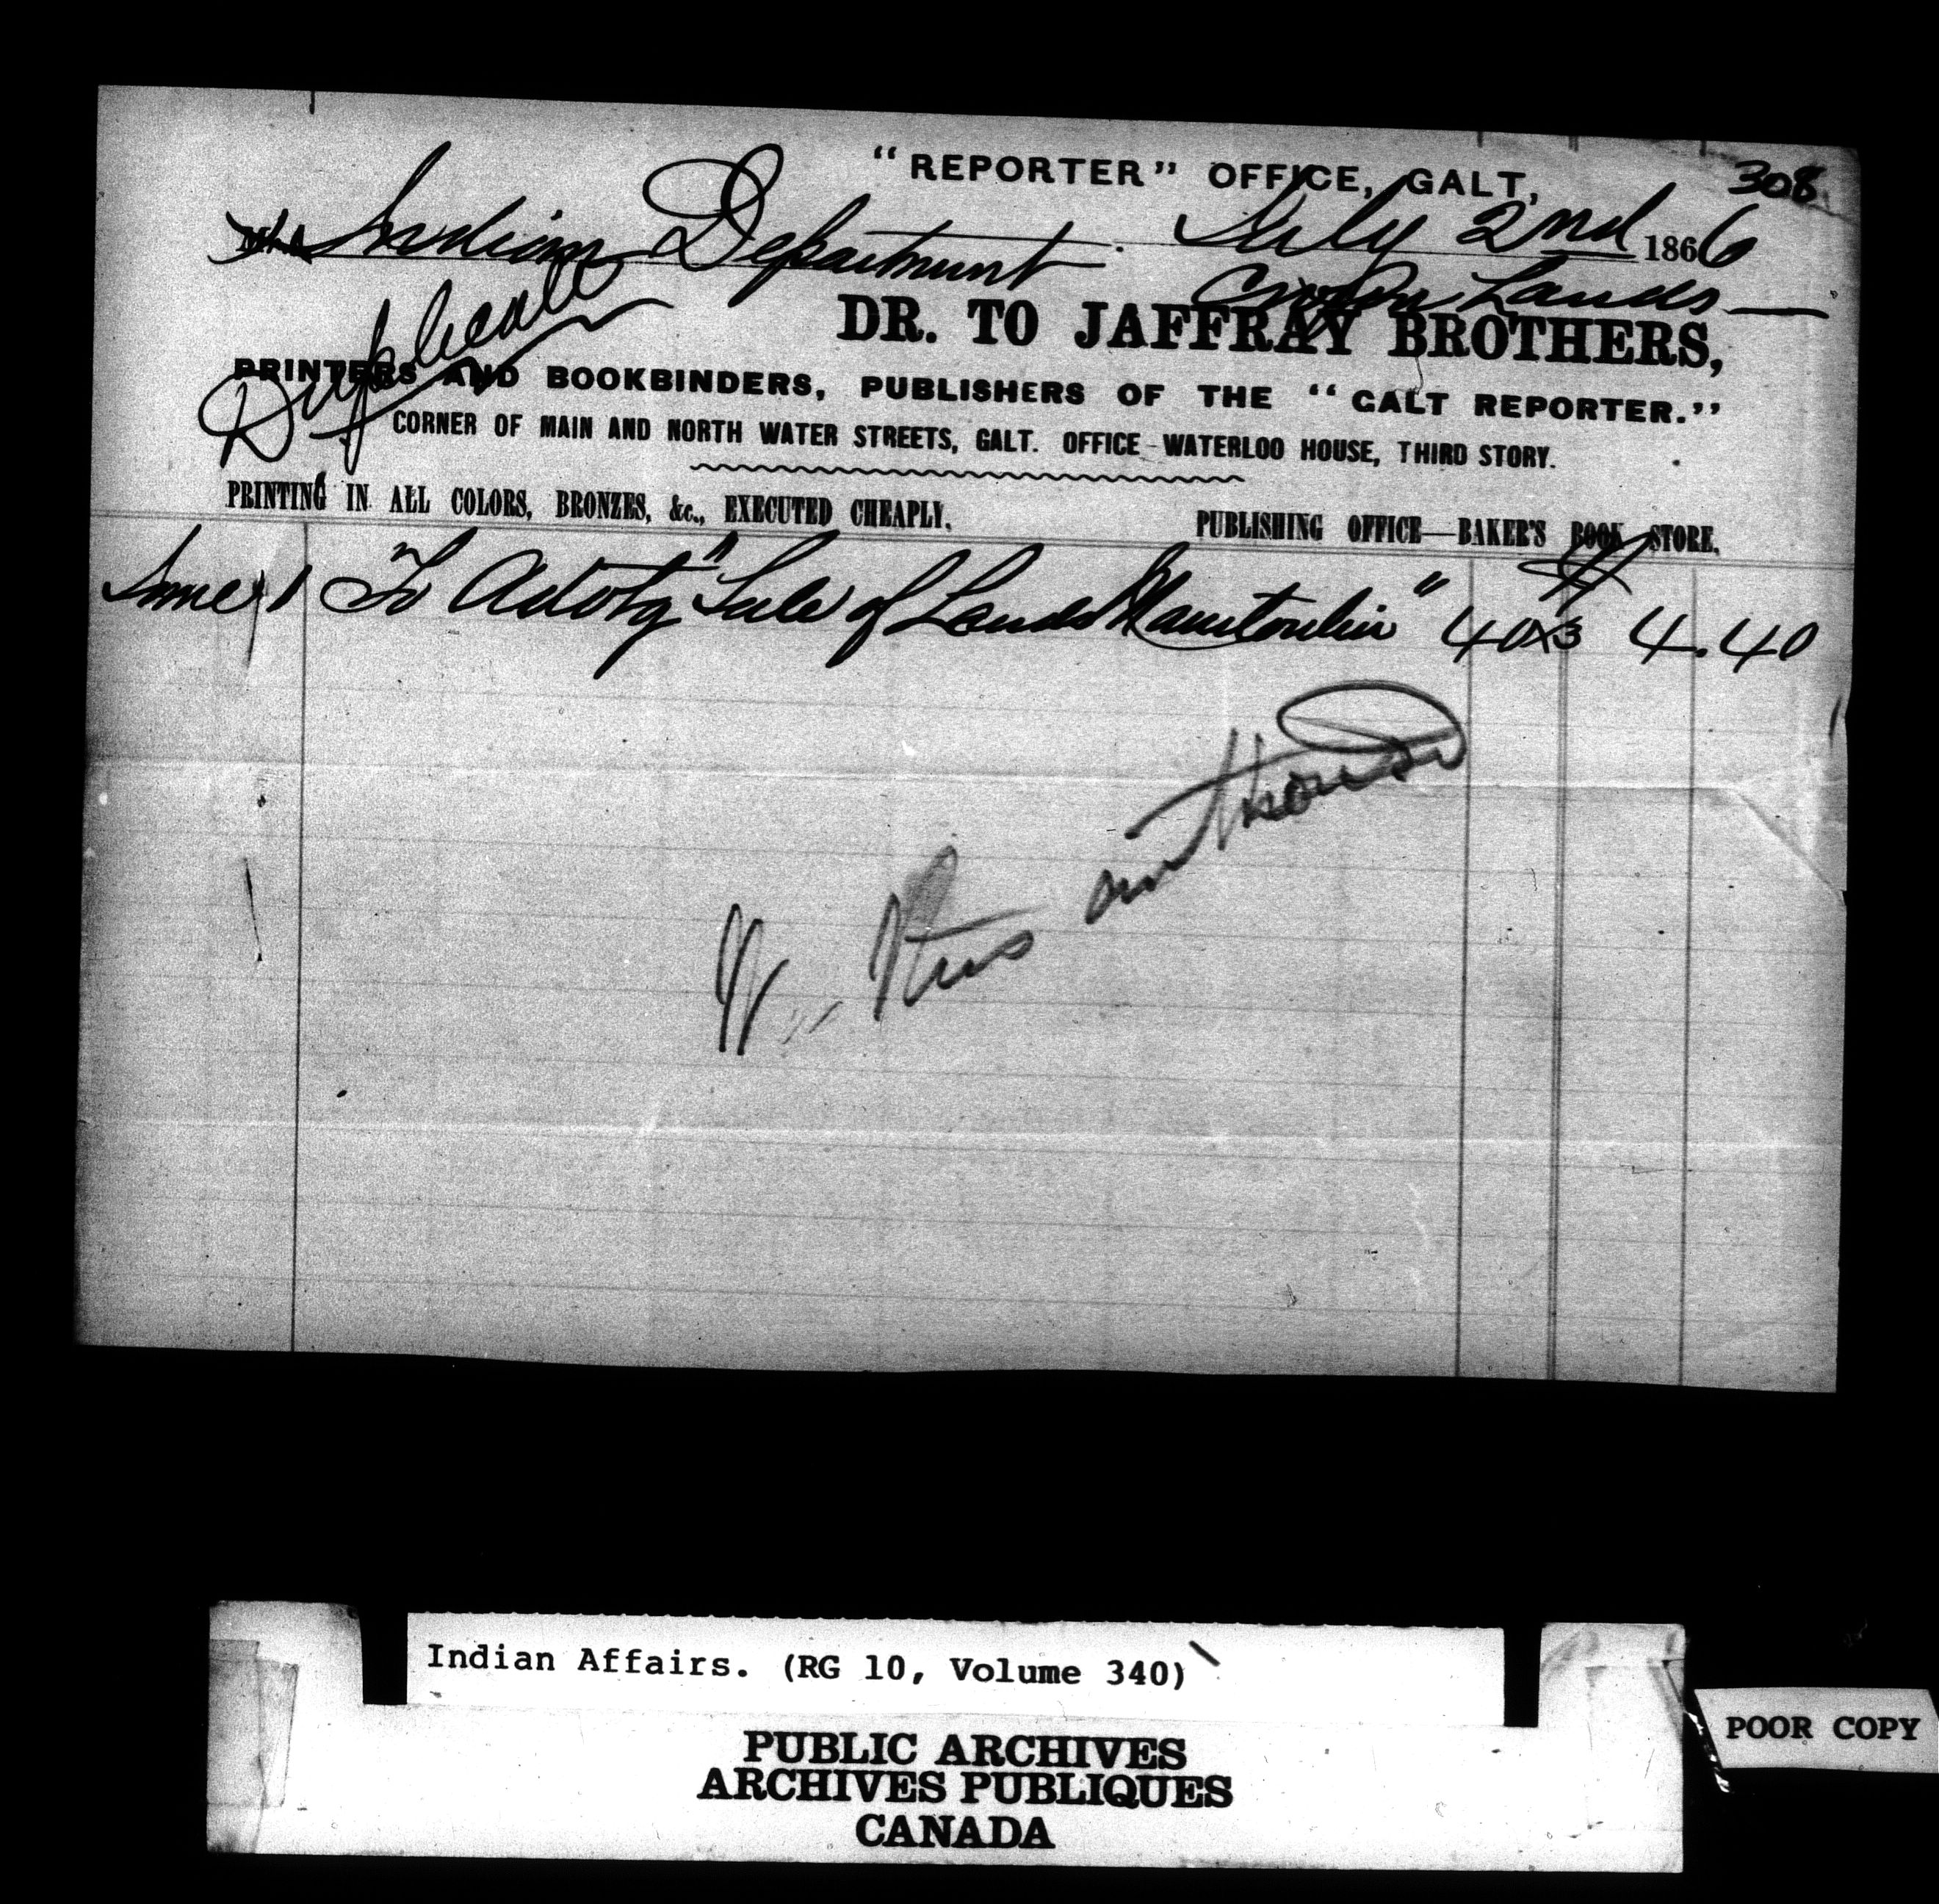 308
"REPORTER" OFFICE, GALT,
Indian Department July 2nd 1866
Crown Lands
Duplicate
DR. TO JAFFRAY BROTHERS,
PRINTERS AND BOOKBINDERS, PUBLISHERS OF THE "GALT REPORTER."
CORNER OF MAIN AND NORTH WATER STREETS, GALT. OFFICE - WATERLOO HOUSE, THIRD STORY.
PRINTING IN ALL COLORS, BRONZES, &c., EXECUTED CHEAPLY. PUBLISHING OFFICE—BAKER'S BOOK STORE.
June 1 To Advtg "Sale of Lands Manitoulin" 40x3 4.40
Indian Affairs. (RG 10, Volume 340)
PUBLIC ARCHIVES
ARCHIVES PUBLIQUES
CANADA
POOR COPY